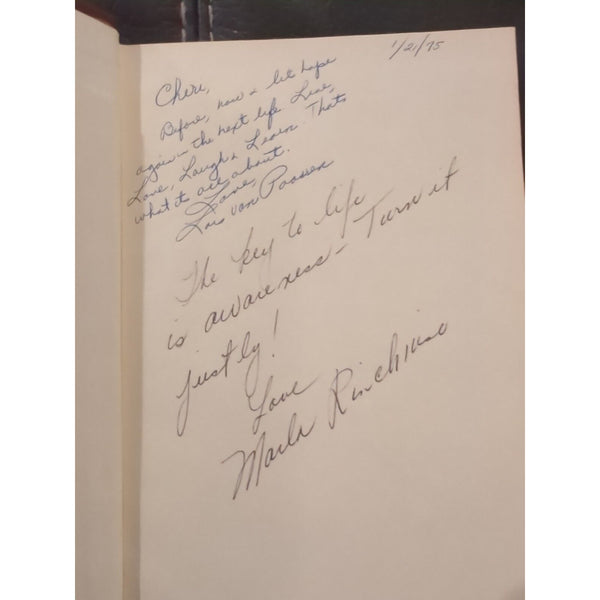 1/21/75
Cheri,
Before, now & let's hope
again in the next life. Live,
Love, Laugh & Learn. Thats
what its all about.
Love,
Lois van Paassen
The key to life
is awareness - Turn it
justly!
Love
Marla